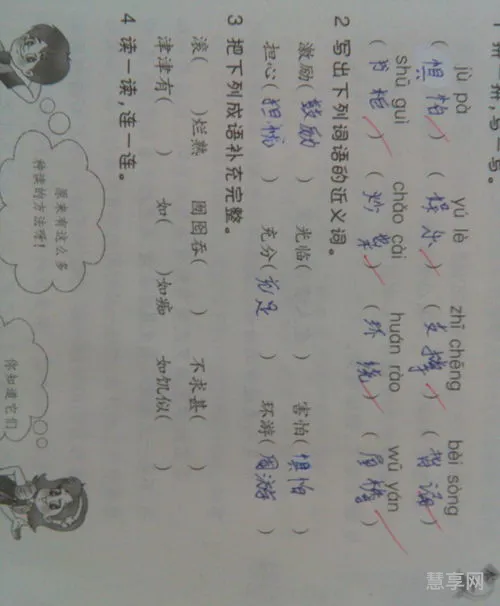 拼,写一写。
jù pà yú lè zhī chēng bèi sòng
(惧怕) (娱乐) (支撑) (背诵)
shū guì chǎo cài huán rào wū yán
(书柜) (炒菜) (环绕) (屋檐)
2 写出下列词语的近义词。
激励(鼓励) 光临( ) 害怕(惧怕)
担心(担忧) 充分(充足) 环游(周游)
3 把下列成语补充完整。
滚( )烂熟 囫囵吞( ) 不求甚( )
津津有( ) 如( )如痴 如饥似( )
4 读一读,连一连。
原来有这么多
种读的方法呀!
你知道它们
慧享网